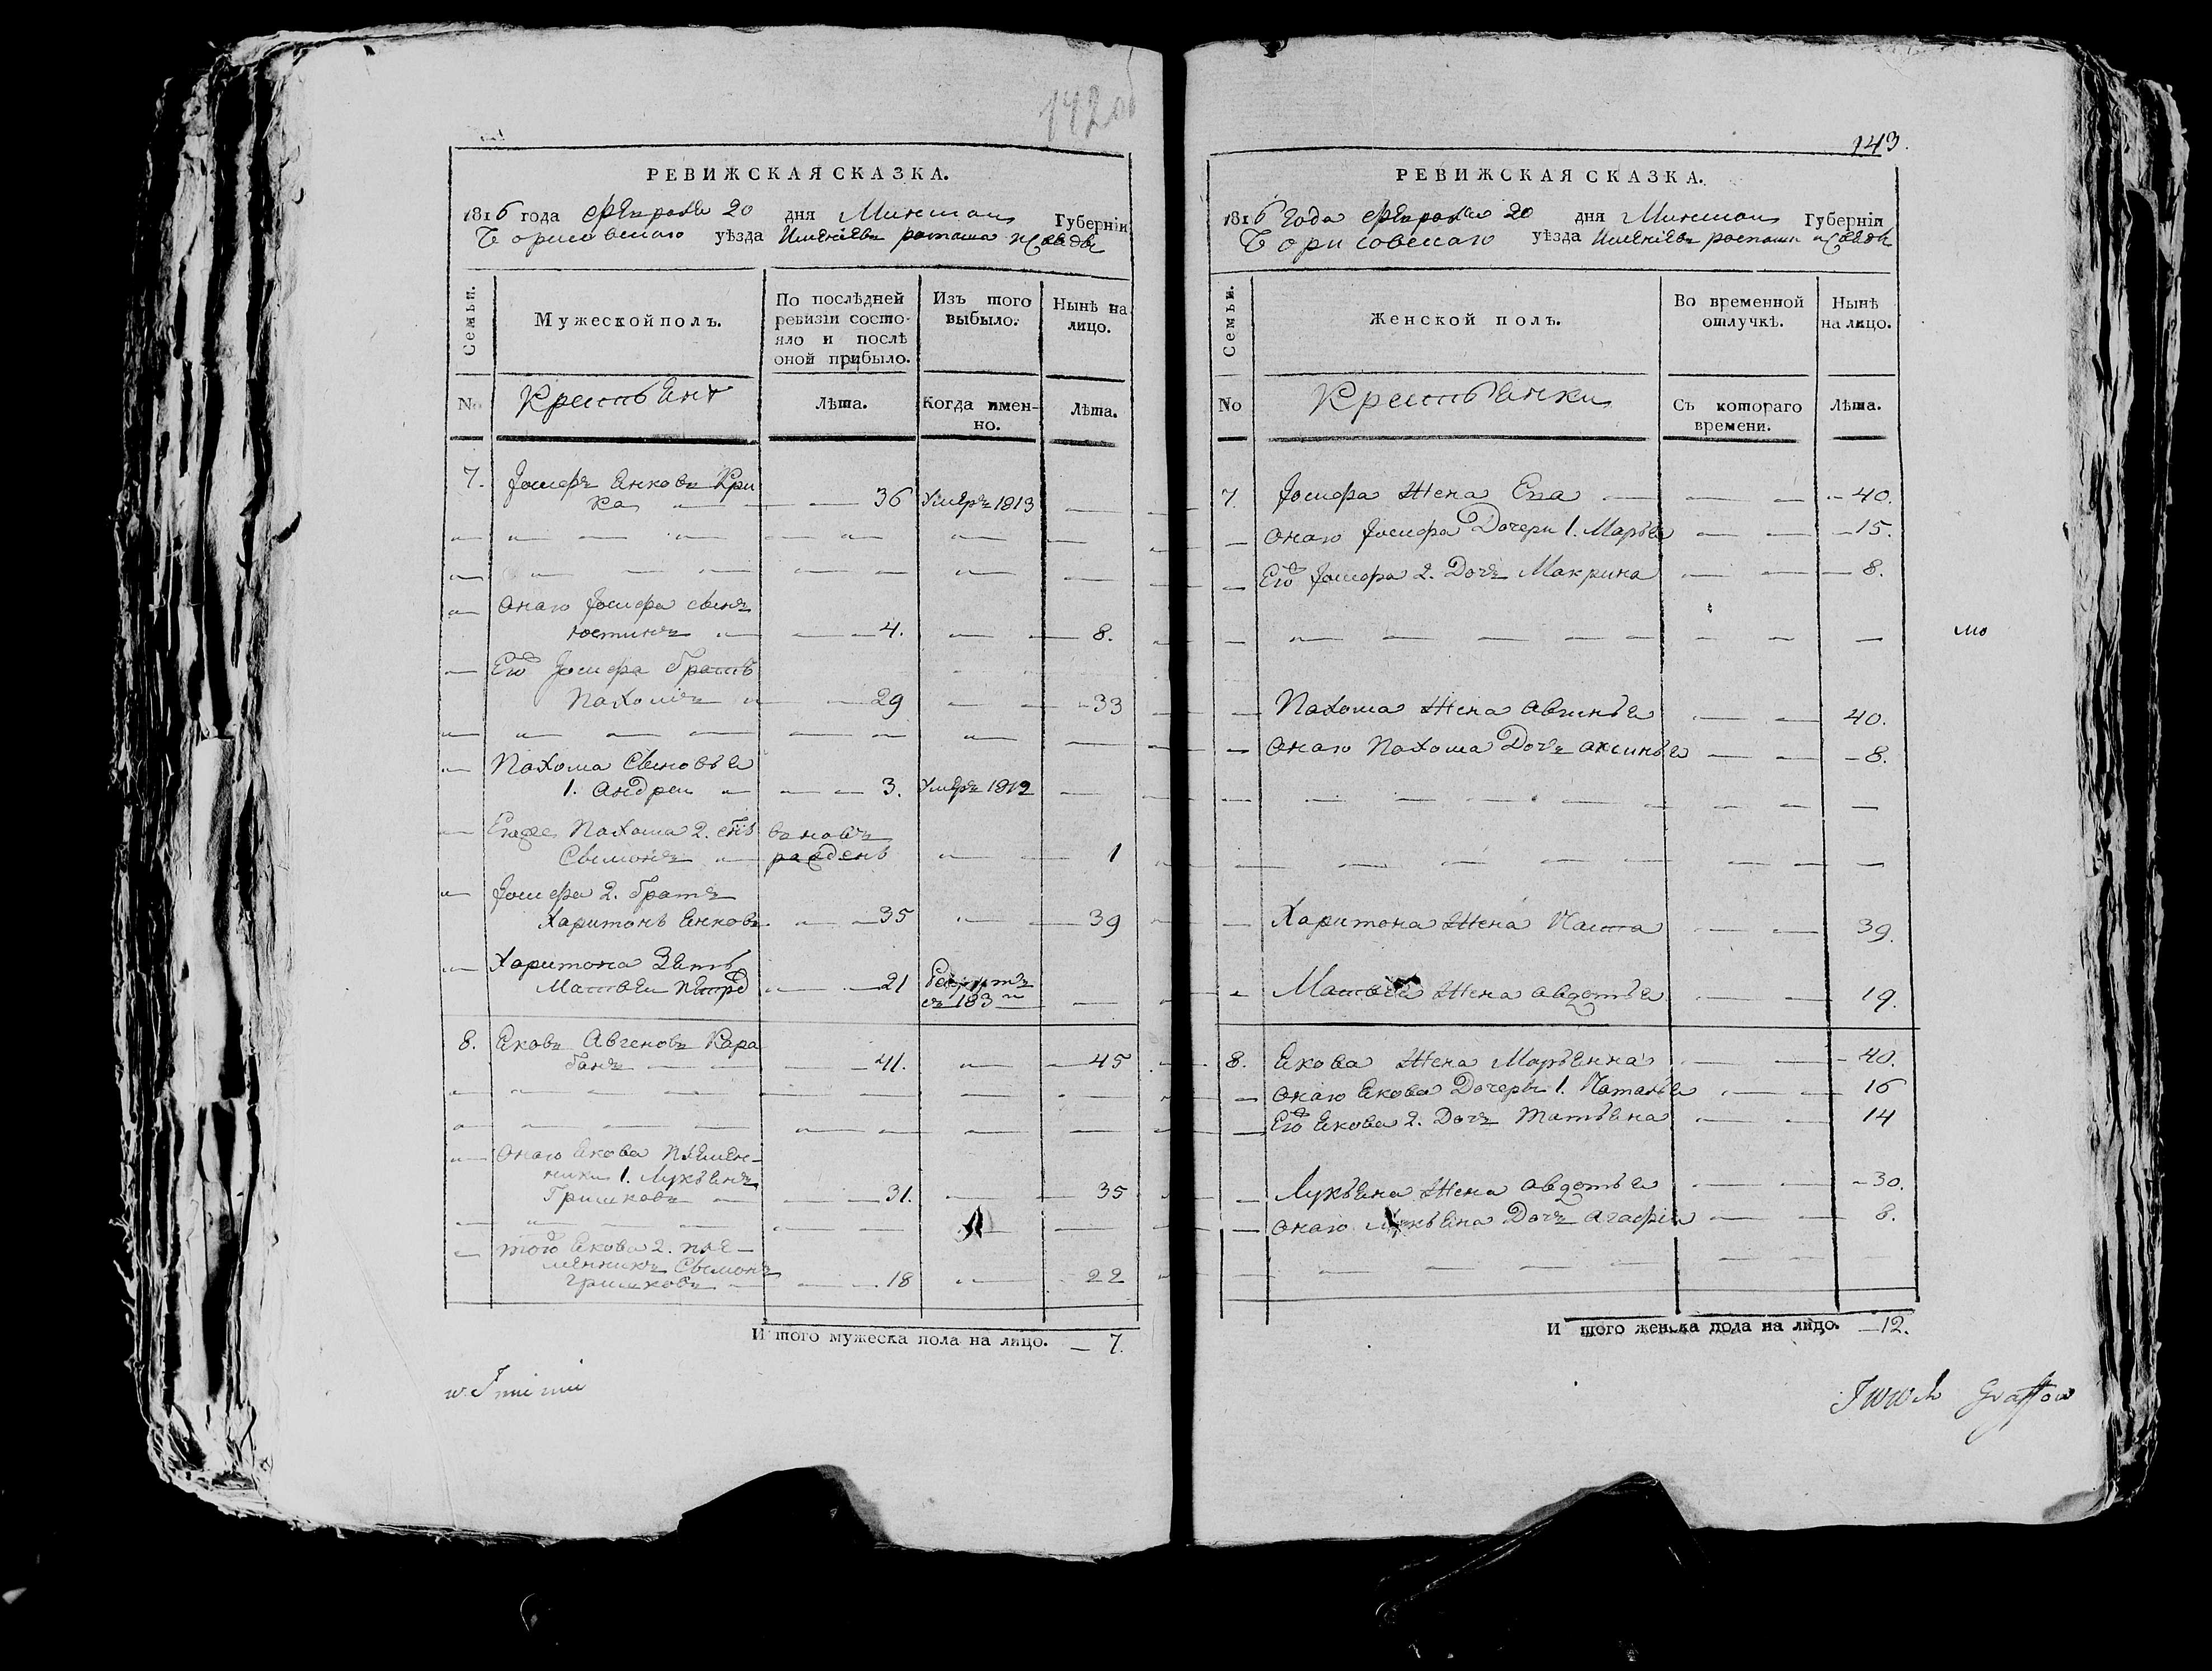 142 об
РЕВИЖСКАЯ СКАЗКА.
1816 года февраля 20 дня Минской Губерніи
Борисовскаго уѣзда Имѣніевъ
Семьи.
Мужеской полъ.
По послѣдней ревизіи состояло и послѣ оной прибыло.
Изъ того выбыло.
Нынѣ на лицо.
No
Крестьянъ
Лѣта.
Когда имен-
но.
Лѣта.
7. Іосифъ Янковъ Кри
ка 36 Умеръ 1813
Онаго Іосифа сынъ
Юстинъ 4. 8.
Его Іосифа братъ
Пахомъ 29 33
Пахома Сыновья
1. Андрей 3. Умеръ 1812
Пахома 2. сынъ
Сымонъ рожденъ 1
Іосифа 2. братъ
Харитонъ Янковъ 35 39
Харитона Зять
Матвей 21 Рекрутъ
8. Яковъ Авгеновъ Кара
банъ 41. 45
Онаго Якова племен-
ники 1. Лукьянъ
Гришковъ 31. 35
того Якова 2. пле-
менникъ Сымонъ
Гришковъ 18 22
И того мужеска пола на лицо. 7.
w Imieniu
143.
РЕВИЖСКАЯ СКАЗКА.
1816 Года февраля 20 дня Минской Губерніи
Борисовскаго уѣзда Имѣніевъ
Семьи.
Женской полъ.
Во временной отлучкѣ.
Нынѣ
на лицо.
No
Крестьянки
Съ котораго
времени.
Лѣта.
7. Іосифа Жена Ева 40.
Онаго Іосифа Дочери 1. Марья 15.
Его Іосифа 2. Дочь Макрина 8.
Пахома Жена Авгинья 40.
Онаго Пахома Дочь Аксинья 8.
Харитона Жена Наста 39.
Матвея Жена Авдотья 19.
8. Якова Жена Марьянна 40.
Онаго Якова Дочеры 1. Наталья 16
Его Якова 2. Дочь Татьяна 14
Лукьяна Жена Авдотья 30.
Онаго Лукьяна Дочь Агафія 8.
И того женска пола на лицо. 12.